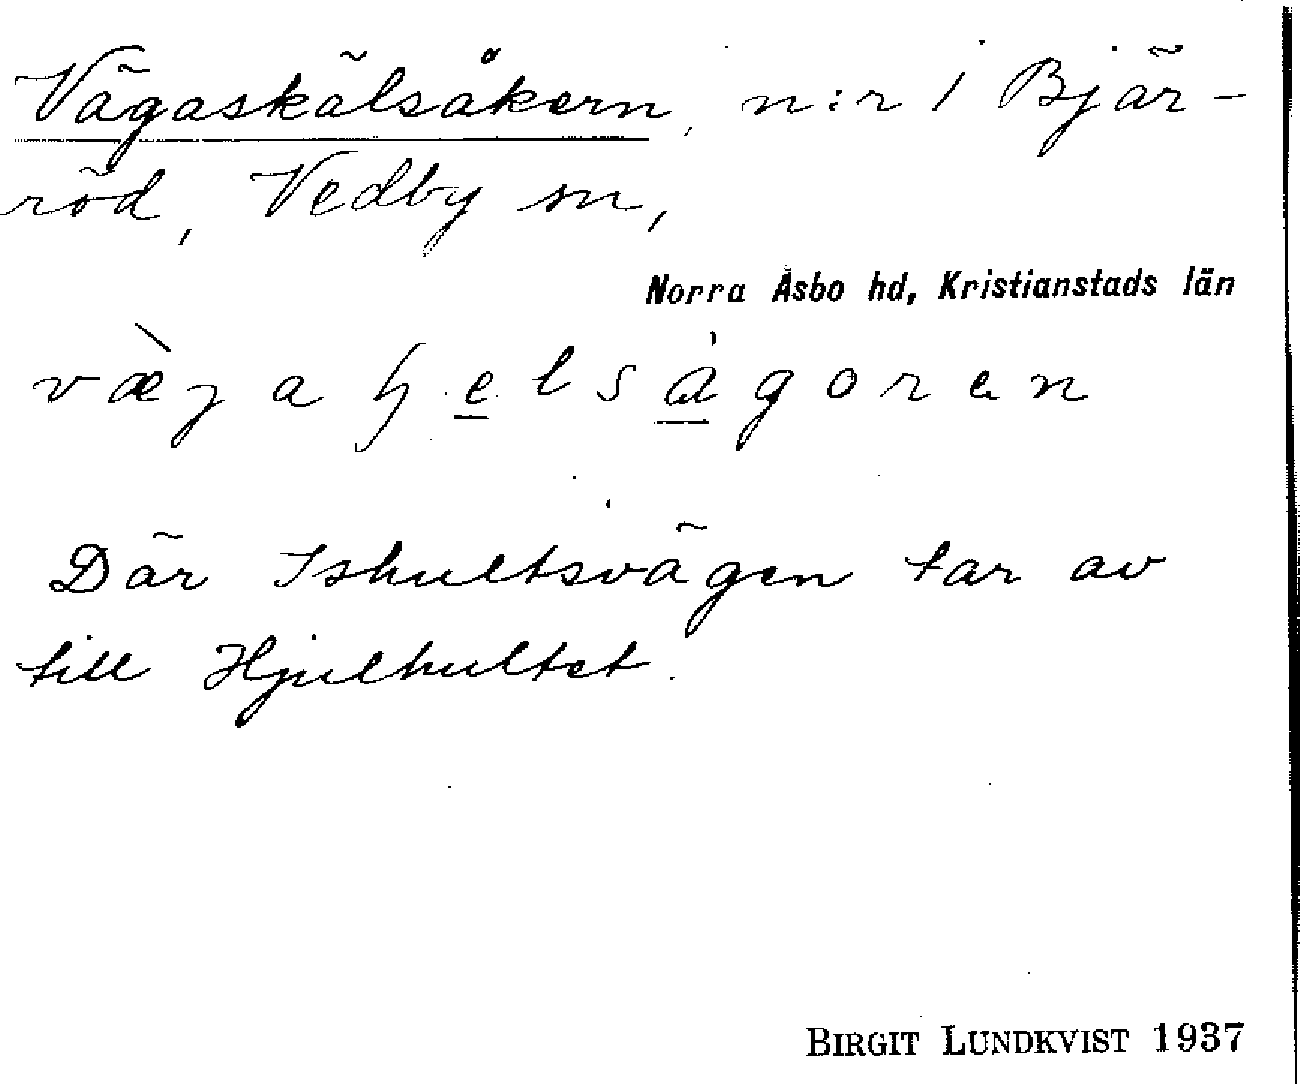 Vägaskälsåkern, n:r 1 Bjär-
röd, Vedby sn,
Norra Åsbo hd, Kristianstads län
væ̀ɡaɧelsågoren
Där Ishultsvägen tar av
till Hjulhultet.
BIRGIT LUNDKVIST 1937